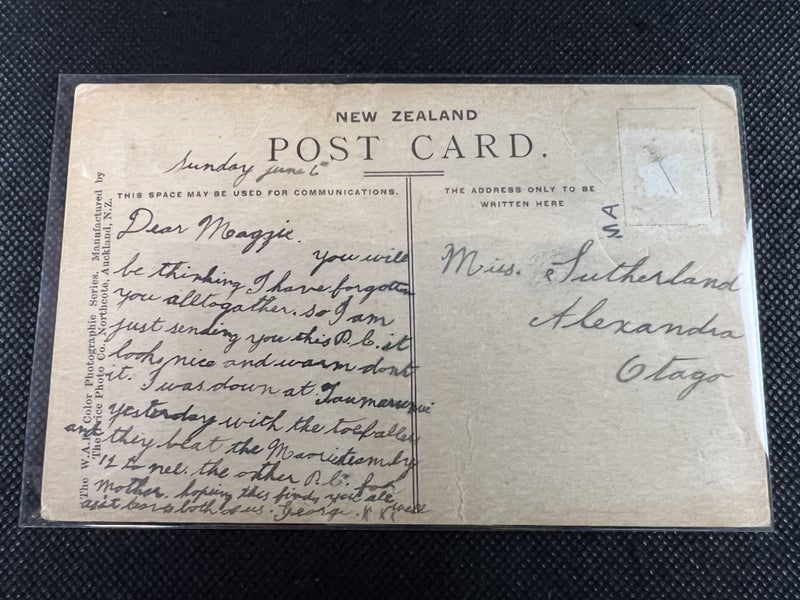 NEW ZEALAND
POST CARD.
Sunday June 6
THIS SPACE MAY BE USED FOR COMMUNICATIONS.
THE ADDRESS ONLY TO BE
WRITTEN HERE
Dear Maggie.
you will
be thinking I have forgotten
you alltogather. so I am
just sending you this P.C. it
looks nice and warm dont
it. I was down at
yesterday with the
and they beat the Maori team by
12 to nel. the other P.C. for
Mother. hoping this finds you all well
as it leaves both of us. George. x xx
Miss. Sutherland
Alexandra
Otago
The W.A.P. Color Photographic Series, Manufactured by
The Price Photo Co. Northcote, Auckland, N.Z.